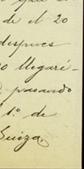 de el 20
despues
o llegaré-
pasando
1º de
Suiza.